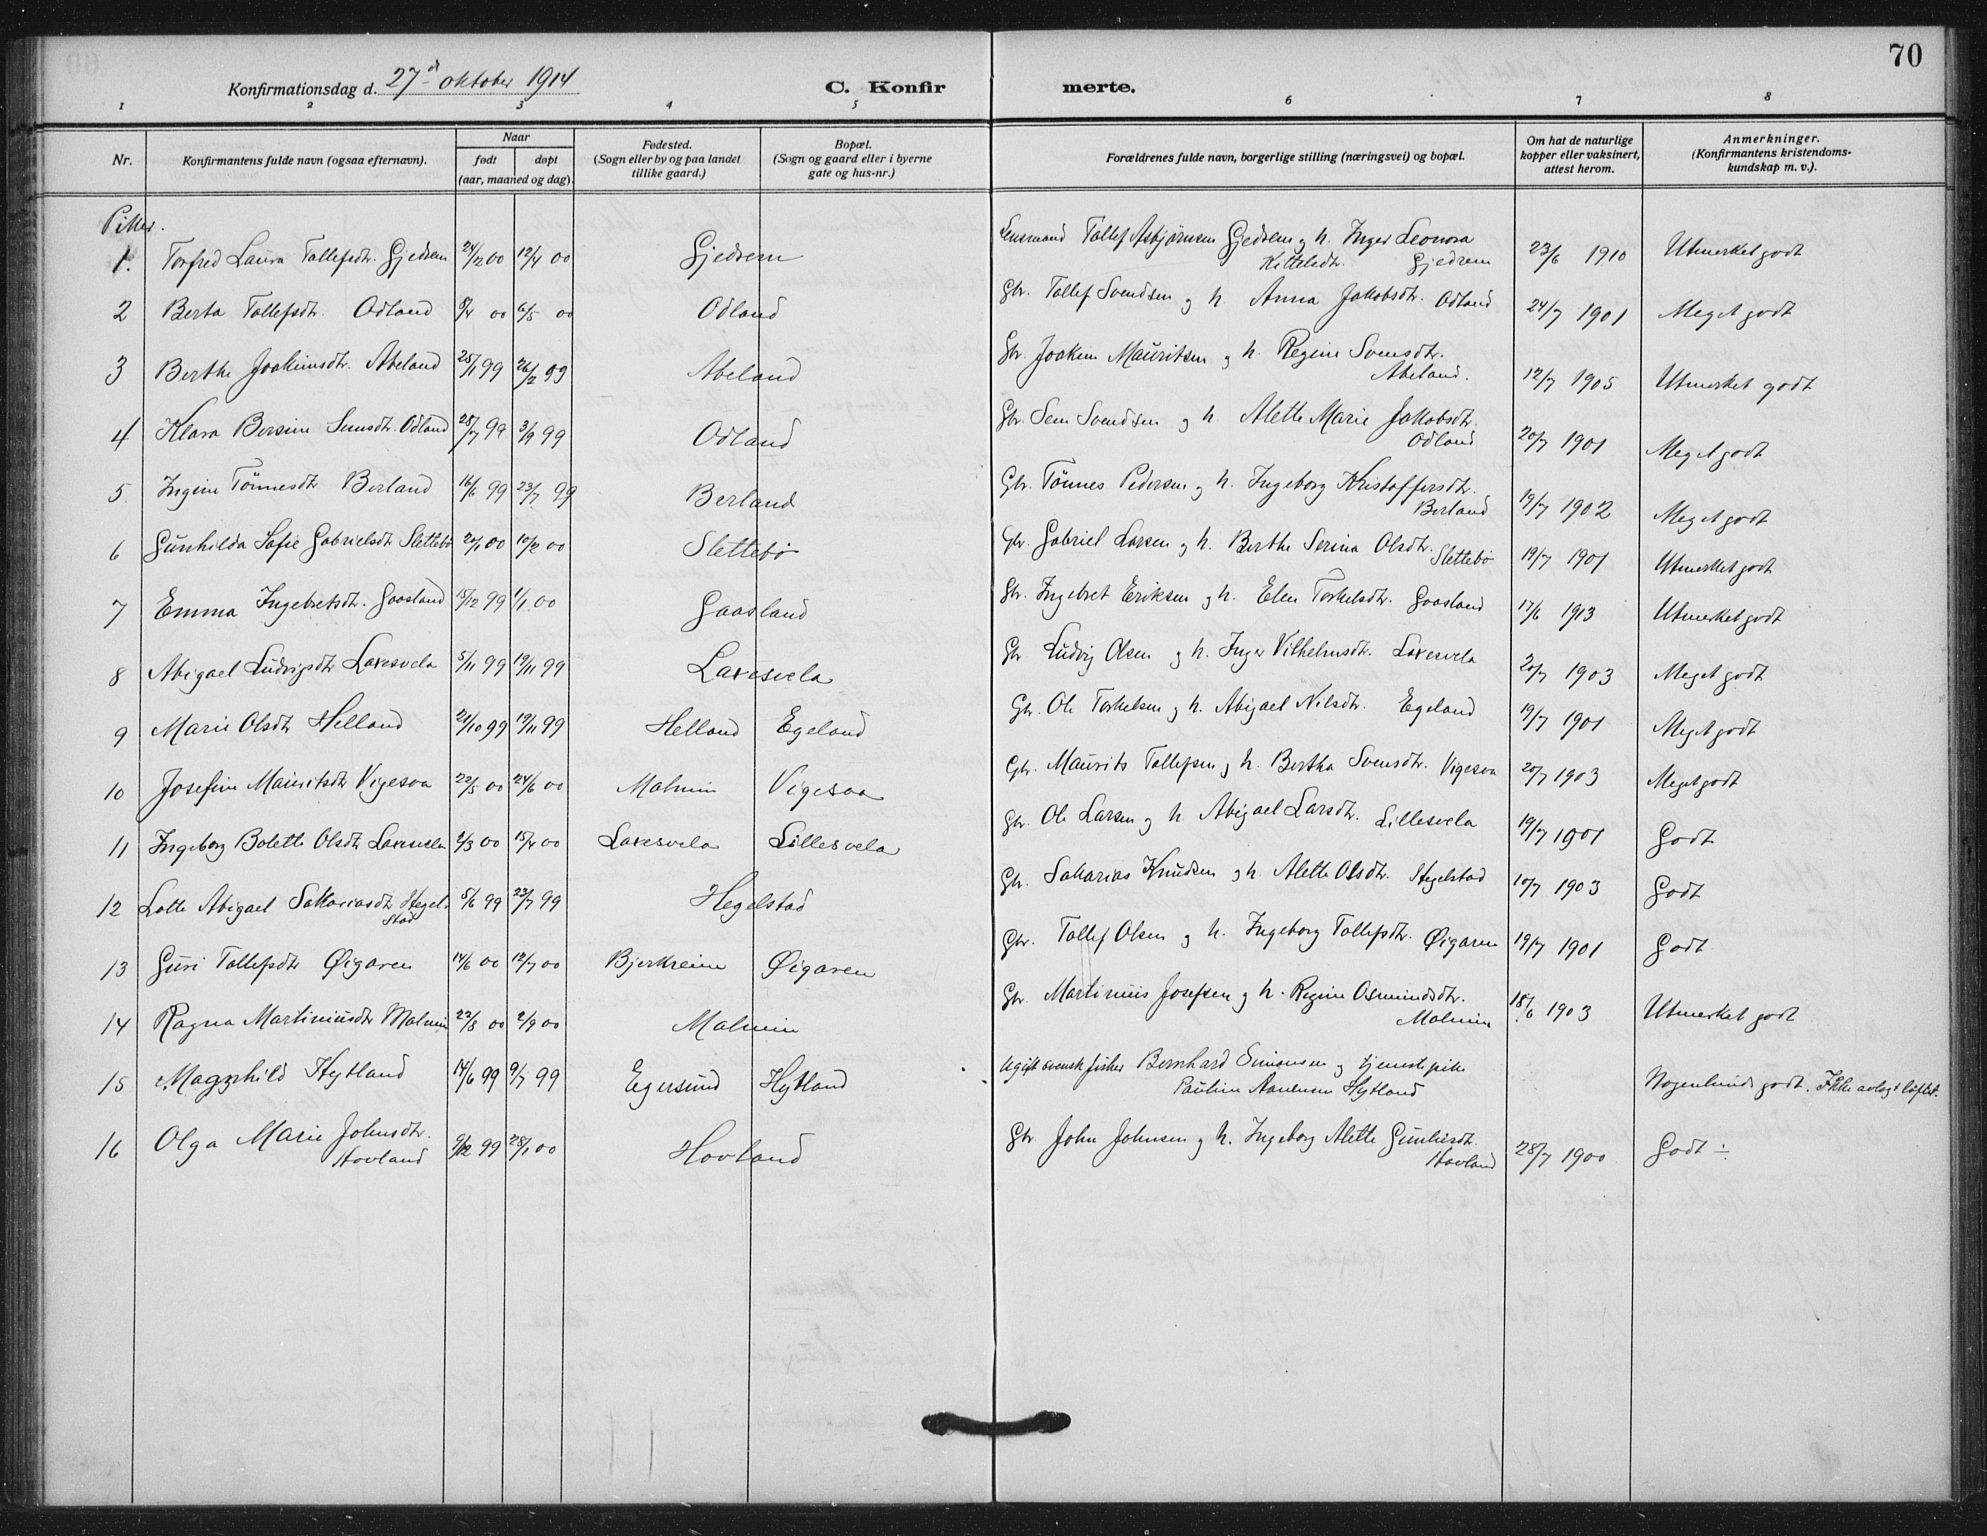 70
Konfirmationsdag d. 27de oktober 1914 C. Konfirmerte.
1 2 3 4 5 6 7 8
Nr. Konfirmantens fulde navn (ogsaa efternavn). Naar født døpt (aar, maaned og dag). Fødested. (Sogn eller by og paa landet tillike gaard.) Bopæl. (Sogn og gaard eller i byerne gate og hus-nr.) Forældrenes fulde navn, borgerlige stilling (næringsvei) og bopæl. Om hat de naturlige kopper eller vaksinert, attest herom. Anmerkninger. (Konfirmantens kristendoms-kundskap m. v.).
Piker.
1. Torfred Laura Tollefsdtr. Gjedrem 24/2 00 12/4 00 Gjedrem Lensmand Tollef Asbjørnsen Gjedrem og h. Inger Leonora Kittelsdtr. Gjedrem 23/6 1910 Utmerket godt
2 Berta Tollefsdtr. Odland 8/4 00 6/5 00 Odland Gbr. Tollef Svendsen og h. Anna Jakobsdtr. Odland 24/7 1901 Meget godt
3 Berthe Joakimsdtr. Abeland 25/1 99 26/2 99 Abeland Gbr. Joakim Mauritsen og h. Regine Svensdtr. Abeland. 12/7 1905 Utmerket godt
4 Klara Bersine Semsdtr. Odland 28/7 99 3/9 99 Odland Gbr. Sem Svendsen og h. Alette Marie Jakobsdtr. Odland 20/7 1901 Meget godt
5 Ingine Tönnesdtr Berland 16/6 99 23/7 99 Berland Gbr. Tönnes Pedersen og h. Ingeborg Kristoffersdtr. Berland 19/7 1902 Meget godt
6 Gunhilda Sofie Gabrielsdtr Slettebø 20/1 00 10/2 00 Slettebø Gbr. Gabriel Larsen og h. Berthe Serina Olsdtr. Slettebø 19/7 1901 Utmerket godt
7 Emma Ingebretsdtr. Gaasland 15/12 99 1/1 00 Gaasland Gbr. Ingebret Eriksen og h. Elen Torkelsdtr. Gaasland 17/6 1913 Utmerket godt
8 Abigael Ludvigsdtr Laxesvela 5/11 99 19/11 99 Laxesvela Gbr Ludvig Olsen og h. Inger Vilhelmsdtr. Laxesvela 20/7 1903 Meget godt
9 Marie Olsdtr Helland 21/10 99 19/11 99 Helland Egeland Gbr. Ole Torkelsen og h. Abigael Nilsdtr. Egeland 19/7 1901 Meget godt
10 Josefine Mauritsdtr Vigesaa 22/5 00 24/6 00 Malmin Vigesaa Gbr. Maurits Tollefsen og h. Bertha Svensdtr. Vigesaa 20/7 1903 Meget godt
11 Ingeborg Bolette Olsdtr Laxesvela 2/3 00 15/4 00 Laxesvela Lillesvela Gbr. Ole Larsen og h Abigael Larsdtr. Lillesvela 19/7 1901 Godt
12 Lotte Abigael Sakariasdtr Hegelstad 5/6 99 23/7 99 Hegelstad Gbr. Sakarias Knudsen og h. Alette Olsdtr. Hegelstad 10/7 1903 Godt
13 Guri Tollefsdtr Øigaren 14/6 00 12/7 00 Bjerkreim Øigaren Gbr. Tollef Olsen og h. Ingeborg Tollefsdtr. Øigaren 19/7 1901 Godt
14 Ragna Martiniusdtr Malmin 22/8 00 2/9 00 Malmin Gbr. Martinius Josefsen og h. Regine Osmundsdtr. Malmin 18/6 1903 Utmerket godt
15 Magnhild Hytland 14/6 99 9/7 99 Egersund Hytland Ugift svensk fisker Bernhard Simonsen og tjenestepike Pauline Aanensen Hytland Nogenlunde godt. Ikke avlagt løftet.
16 Olga Marie Johnsdtr. Hovland 9/12 99 28/1 00 Hovland Gbr John Johnsen og h. Ingeborg Alette Gunleiksdtr. Hovland 28/7 1900 Godt ÷